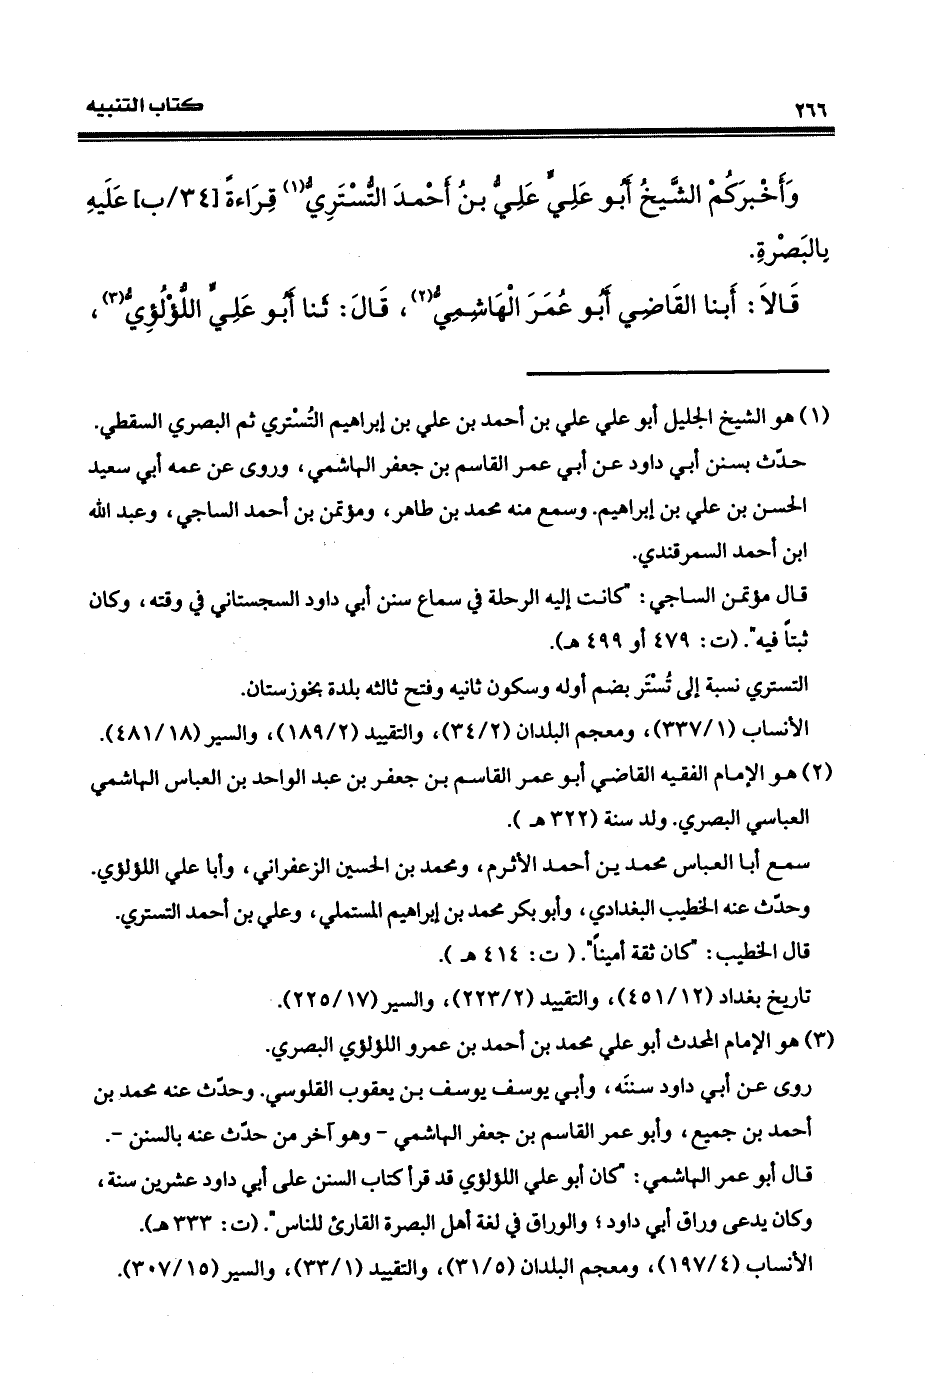 ٢٦٦ كتاب التنبيه
وَأَخْبَرَكُمْ الشَّيخُ أَبُو عَلِيٍّ عَلِيُّ بنُ أَحْمدَ التُّسْتَرِيُّ(١) قِرَاءةً [٣٤/ب] عَلَيهِ
بِالبَصْرةِ.
قَالاَ: أَبنا القَاضِي أَبُو عُمَرَ الْهَاشِمِيُّ(٢)، قَالَ: ثَنا أَبُو عَلِيٍّ اللُّؤْلُؤِيُّ(٣)،
(١) هو الشيخ الجليل أبو علي علي بن أحمد بن علي بن إبراهيم التُسْتري ثم البصري السقطي.
حدّث بسنن أبي داود عن أبي عمر القاسم بن جعفر الهاشمي، وروى عن عمه أبي سعيد
الحسن بن علي بن إبراهيم. وسمع منه محمد بن طاهر، ومؤتمن بن أحمد الساجي، وعبد الله
ابن أحمد السمرقندي.
قال مؤتمن الساجي: "كانت إليه الرحلة في سماع سنن أبي داود السجستاني في وقته، وكان
ثبتاً فيه". (ت: ٤٧٩ أو ٤٩٩ هـ).
التستري نسبة إلى تُسْتَر بضم أوله وسكون ثانيه وفتح ثالثه بلدة بخوزستان.
الأنساب (٣٣٧/١)، ومعجم البلدان (٣٤/٢)، والتقييد (١٨٩/٢)، والسير (٤٨١/١٨).
(٢) هو الإمام الفقيه القاضي أبو عمر القاسم بن جعفر بن عبد الواحد بن العباس الهاشمي
العباسي البصري. ولد سنة (٣٢٢ هـ ).
سمع أبا العباس محمد بن أحمد الأثرم، ومحمد بن الحسين الزعفراني، وأبا علي اللؤلؤي.
وحدّث عنه الخطيب البغدادي، وأبو بكر محمد بن إبراهيم المستملي، وعلي بن أحمد التستري.
قال الخطيب: "كان ثقة أميناً". ( ت: ٤١٤ هـ ).
تاريخ بغداد (٤٥١/١٢)، والتقييد (٢٢٣/٢)، والسير (٢٢٥/١٧).
(٣) هو الإمام المحدث أبو علي محمد بن أحمد بن عمرو اللؤلؤي البصري.
روى عن أبي داود سننَه، وأبي يوسف يوسف بن يعقوب القلوسي. وحدّث عنه محمد بن
أحمد بن جميع، وأبو عمر القاسم بن جعفر الهاشمي - وهو آخر من حدّث عنه بالسنن -.
قال أبو عمر الهاشمي: "كان أبو علي اللؤلؤي قد قرأ كتاب السنن على أبي داود عشرين سنة،
وكان يدعى وراق أبي داود؛ والوراق في لغة أهل البصرة القارئ للناس". (ت: ٣٣٣ هـ).
الأنساب (١٩٧/٤)، ومعجم البلدان (٣١/٥)، والتقييد (٣٣/١)، والسير (٣٠٧/١٥).